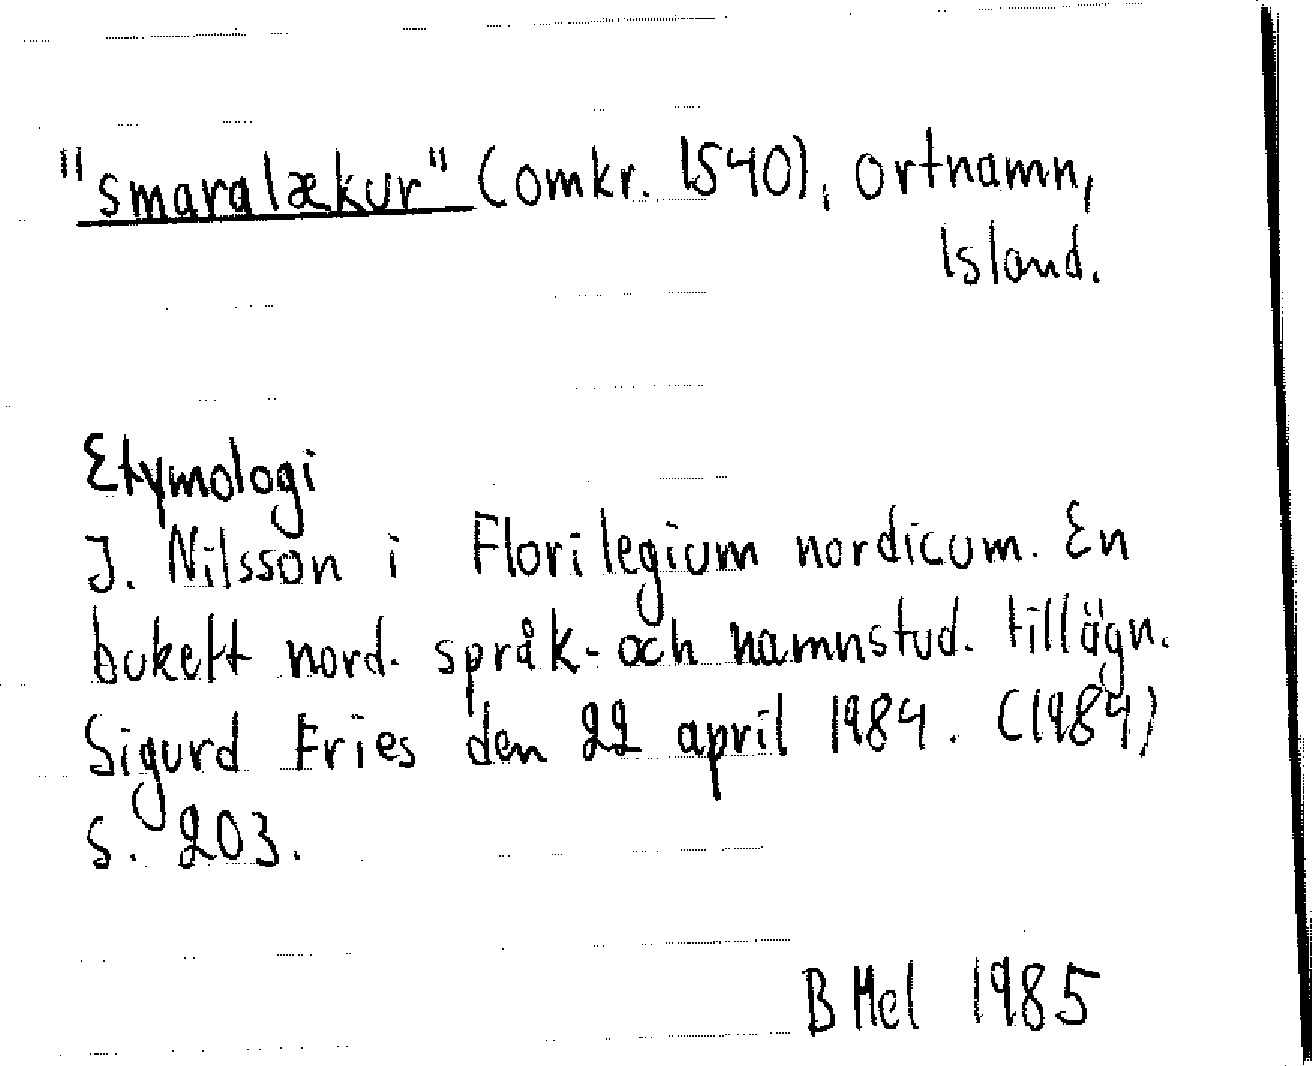 "smaralækur" (omkr. 1540), ortnamn,
Island.
Etymologi
J. Nilsson i Florilegium nordicum. En
bukett nord. språk- och namnstud. tillägn.
Sigurd Fries den 22 april 1984. (1984)
s. 203.
B Mel 1985